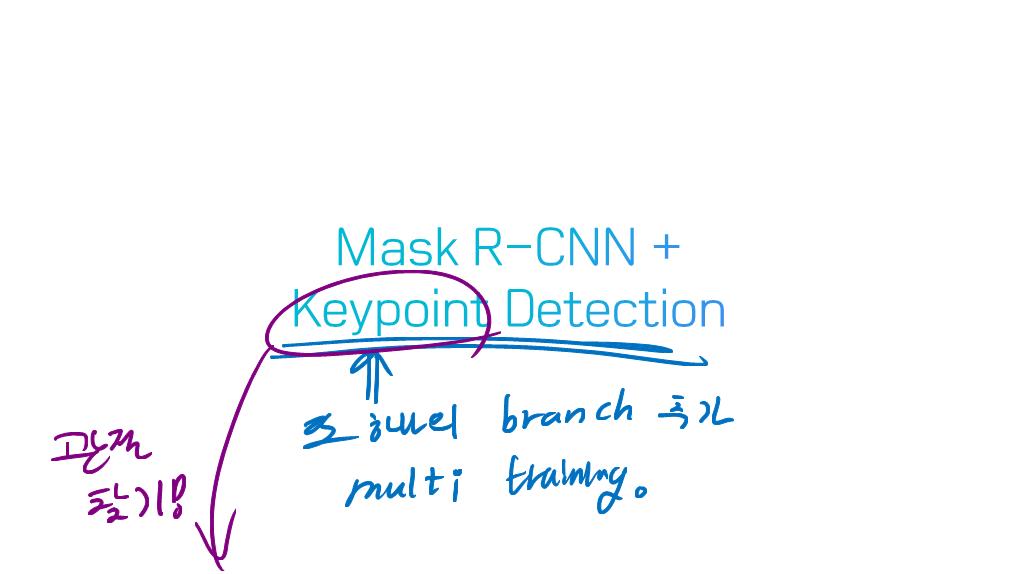 Mask R-CNN +
Keypoint Detection
하나의 branch 추가
multi training.
관절